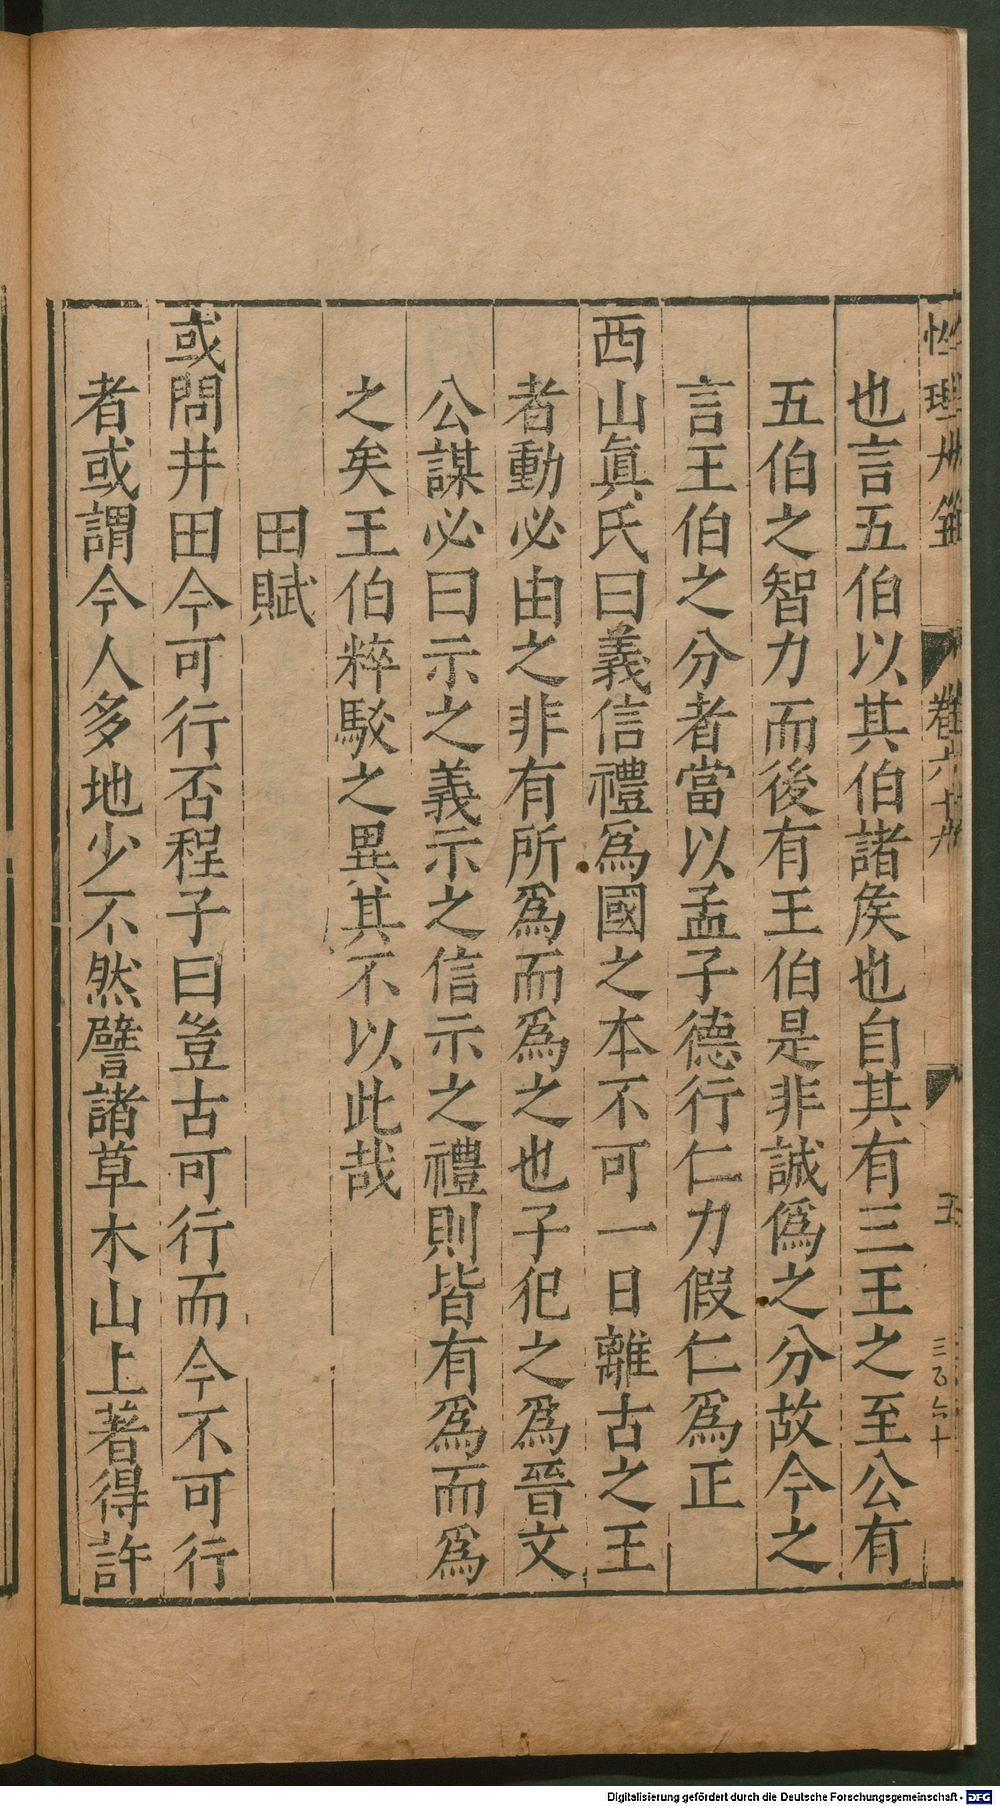 也言五伯以其伯諸矦也自其有三王之至公有
五伯之智力而後有王伯是非誠僞之分故今之
言王伯之分者當以孟子德行仁力假仁爲正
西山眞氏曰義信禮爲國之本不可一日離古之王
者動必由之非有所爲而爲之也子犯之爲晉文
公謀必曰示之義示之信示之禮則皆有爲而爲
之矣王伯粹駁之異其不以此哉
田賦
或問井田今可行否程子曰豈古可行而今不可行
者或謂今人多地少不然譬諸草木山上著得許
Digitalisierung gefördert durch die Deutsche Forschungsgemeinschaft - DFG